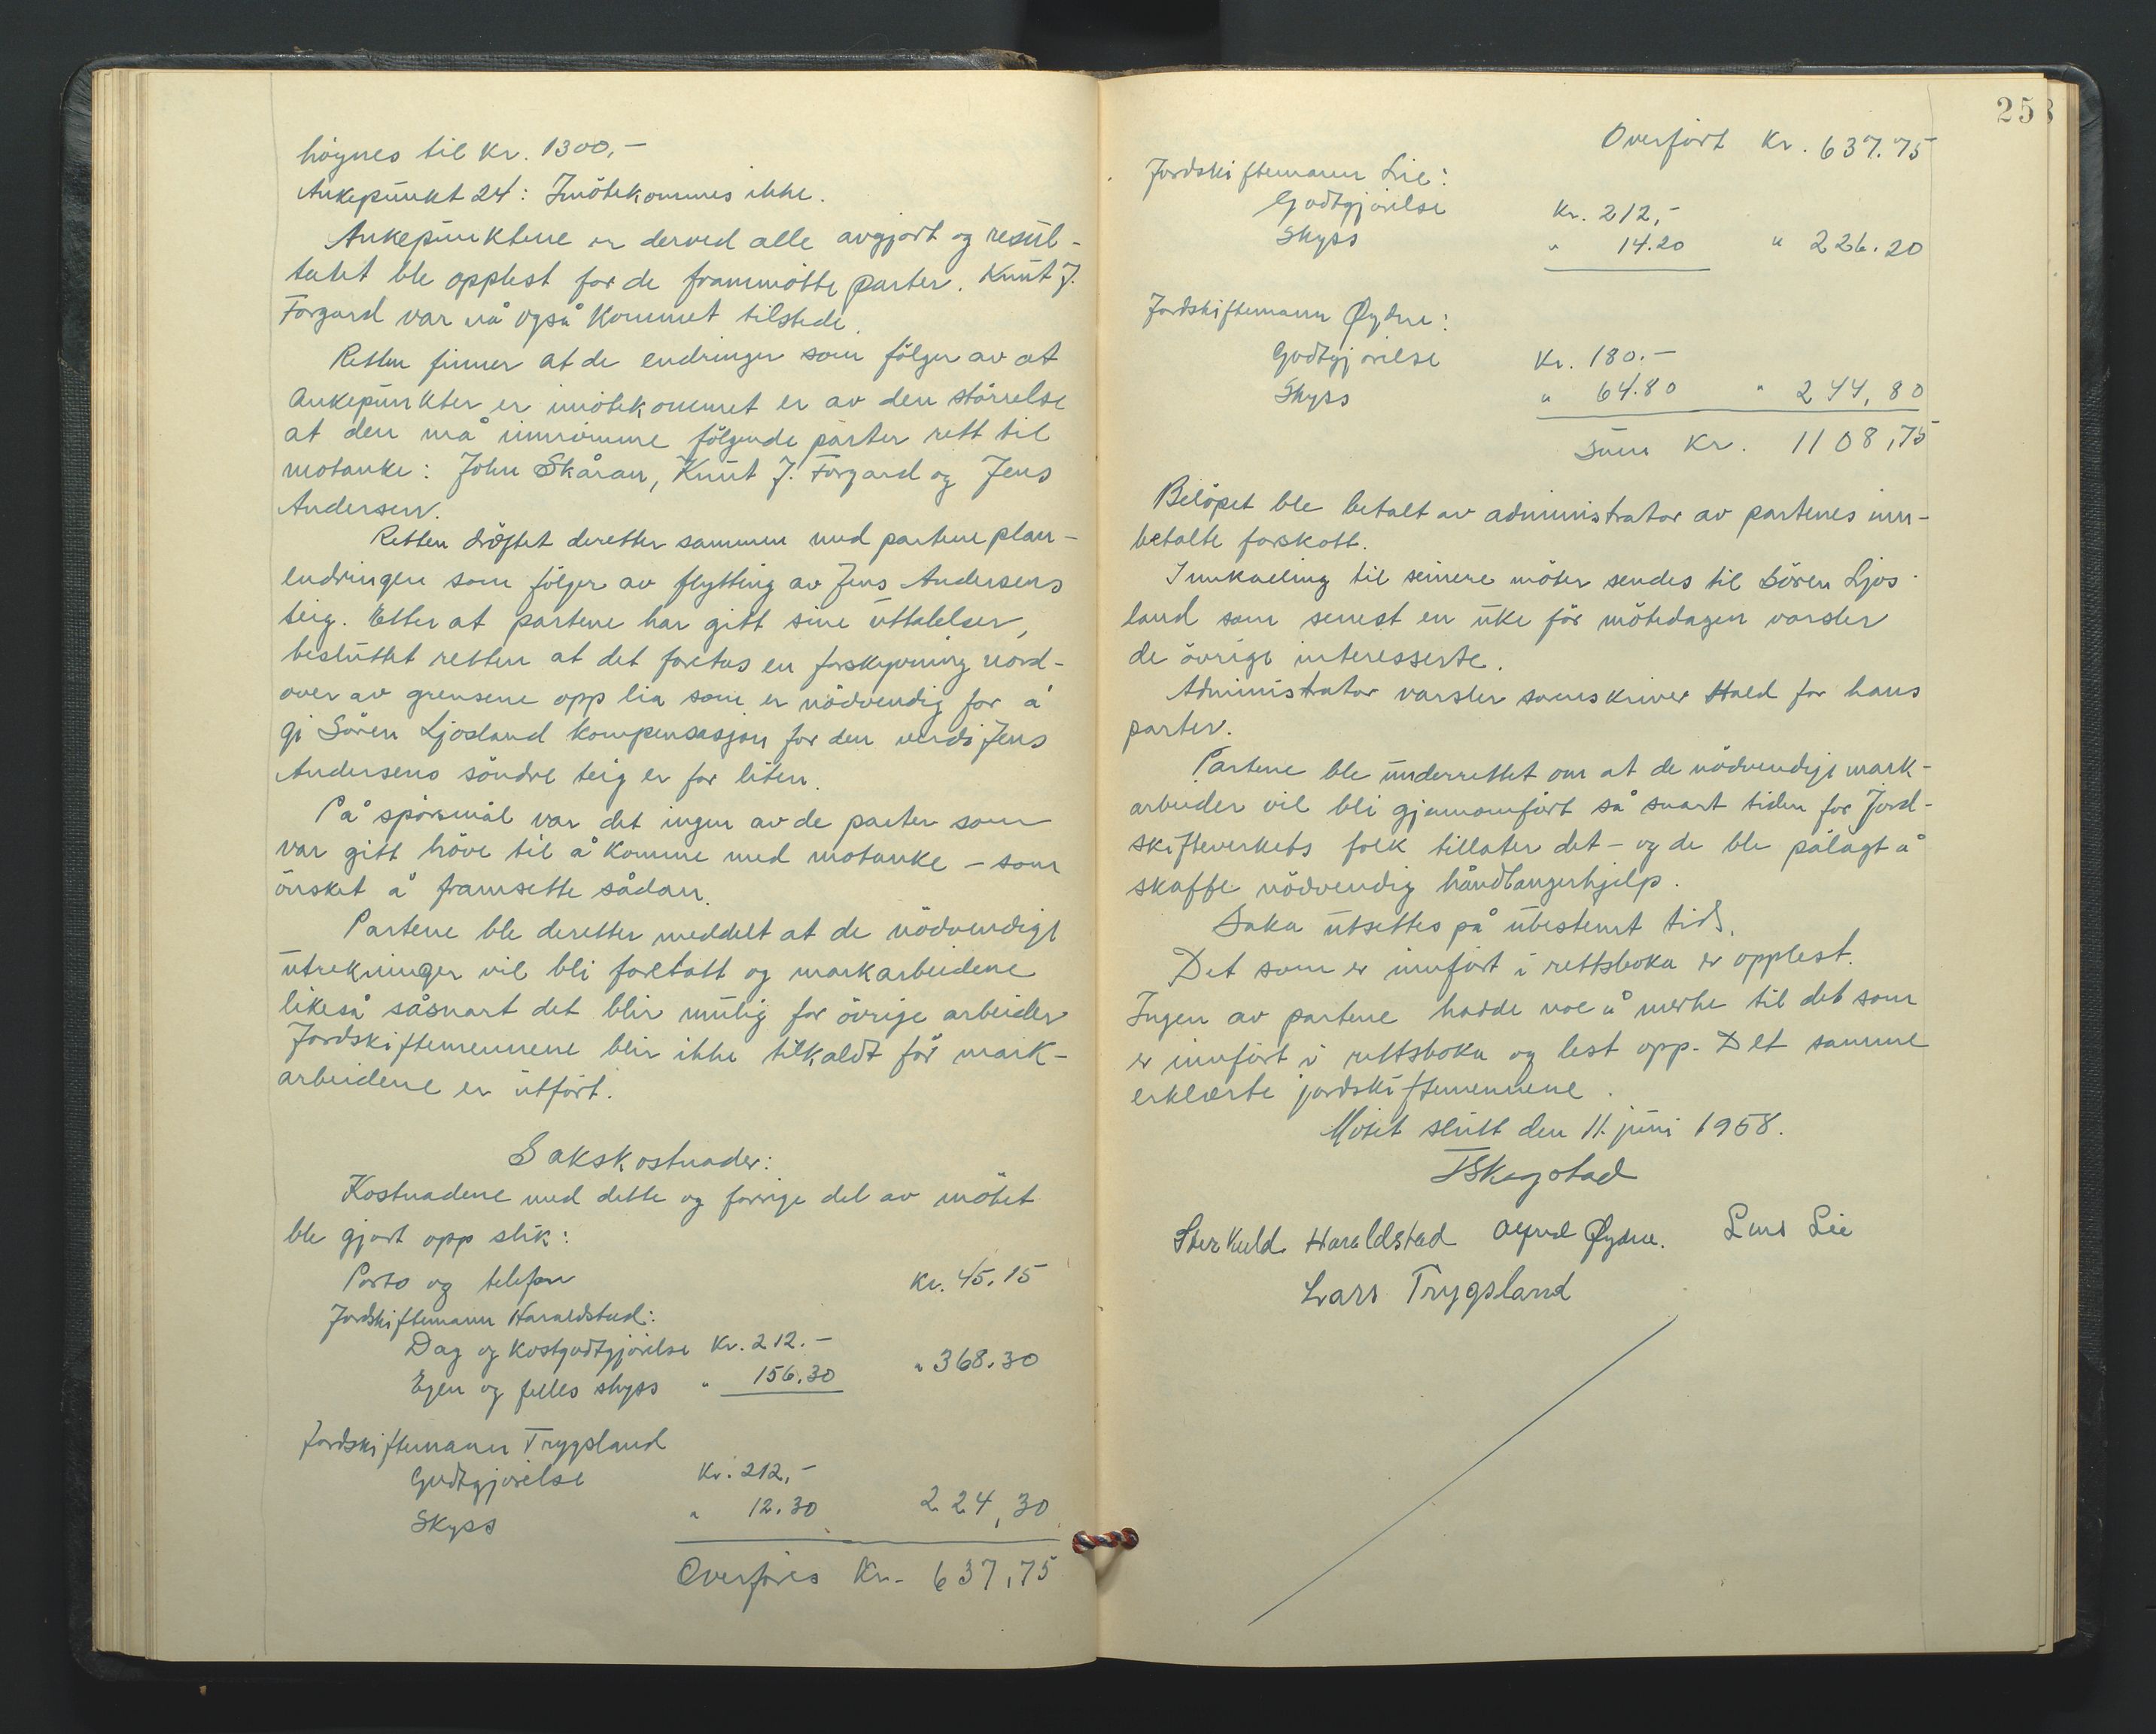 høgnes til kr. 1300,-
Ankepunkt 24: Imötekommes ikke.
Ankepunktene er derved alle avgjort og resul-
tatet ble opplest for de frammötte parter. Knut J.
Forgard var nå også kommet tilstede.
Retten finner at de endringer som fölger av at
ankepunkter er imötekommet er av den störrelse
at den må innrömme fölgende parter rett til
motanke: John Skåran, Knut J. Forgard og Jens
Andersen.
Retten dröftet deretter sammen med partene plan-
endringen som fölger av flytting av Jens Andersens
teig. Etter at partene har gitt sine uttalelser,
besluttet retten at det foretas en forskyvning nord-
over av grensene opp lia som er nödvendig for å
gi Sören Ljosland kompensasjon for den verdi Jens
Andersens söndre teig er for liten.
På spörsmål var det ingen av de parter som
var gitt höve til å komme med motanke - som
önsket å framsette sådan.
Partene ble deretter meddelt at de nödvendige
utrekninger vil bli foretatt og markarbeidene
likeså såsnart det blir mulig for övrige arbeider
Jordskiftemennene blir ikke tilkaldt för mark-
arbeidene er utfört.
Sakskostnader:
Kostnadene med dette og forrige del av mötet
ble gjort opp slik:
Porto og telefon kr. 45.15
Jordskiftemann Haraldstad:
Dag og kostgodtgjörelse kr. 212.-
Egen og felles skyss " 156.30 " 368.30
Jordskiftemann Trygsland
Godtgjörelse kr. 212,-
Skyss " 12.30 224,30
Overföres kr. 637,75
258
Overfört kr. 637.75
Jordskiftemann Lie:
Godtgjörelse kr. 212,-
Skyss " 14.20 " 226.20
Jordskiftemann Øydne:
Godtgjörelse kr. 180.-
Skyss " 64.80 " 244,80
Sum kr. 1108,75
Belöpet ble betalt av administrator av partenes inn-
betalte forskott.
Innkalling til seinere möter sendes til Sören Ljos-
land som senest en uke för mötedagen varsler
de övrige interesserte.
Administrator varsler sorenskriver Hald for hans
parter.
Partene ble underrettet om at de nödvendige mark-
arbeider vil bli gjennomfört så snart tiden for Jord-
skifteverkets folk tillater det - og de ble pålagt å
skaffe nödvendig håndlangerhjelp.
Saka utsettes på ubestemt tid.
Det som er innfört i rettsboka er opplest.
Ingen av partene hadde noe å merke til det som
er innfört i rettsboka og lest opp. Det samme
erklærte jordskiftemennene.
Mötet slutt den 11. juni 1958.
Skegstad
Haraldstad Alfred Øydne. Lars Lie
Lars Trygsland